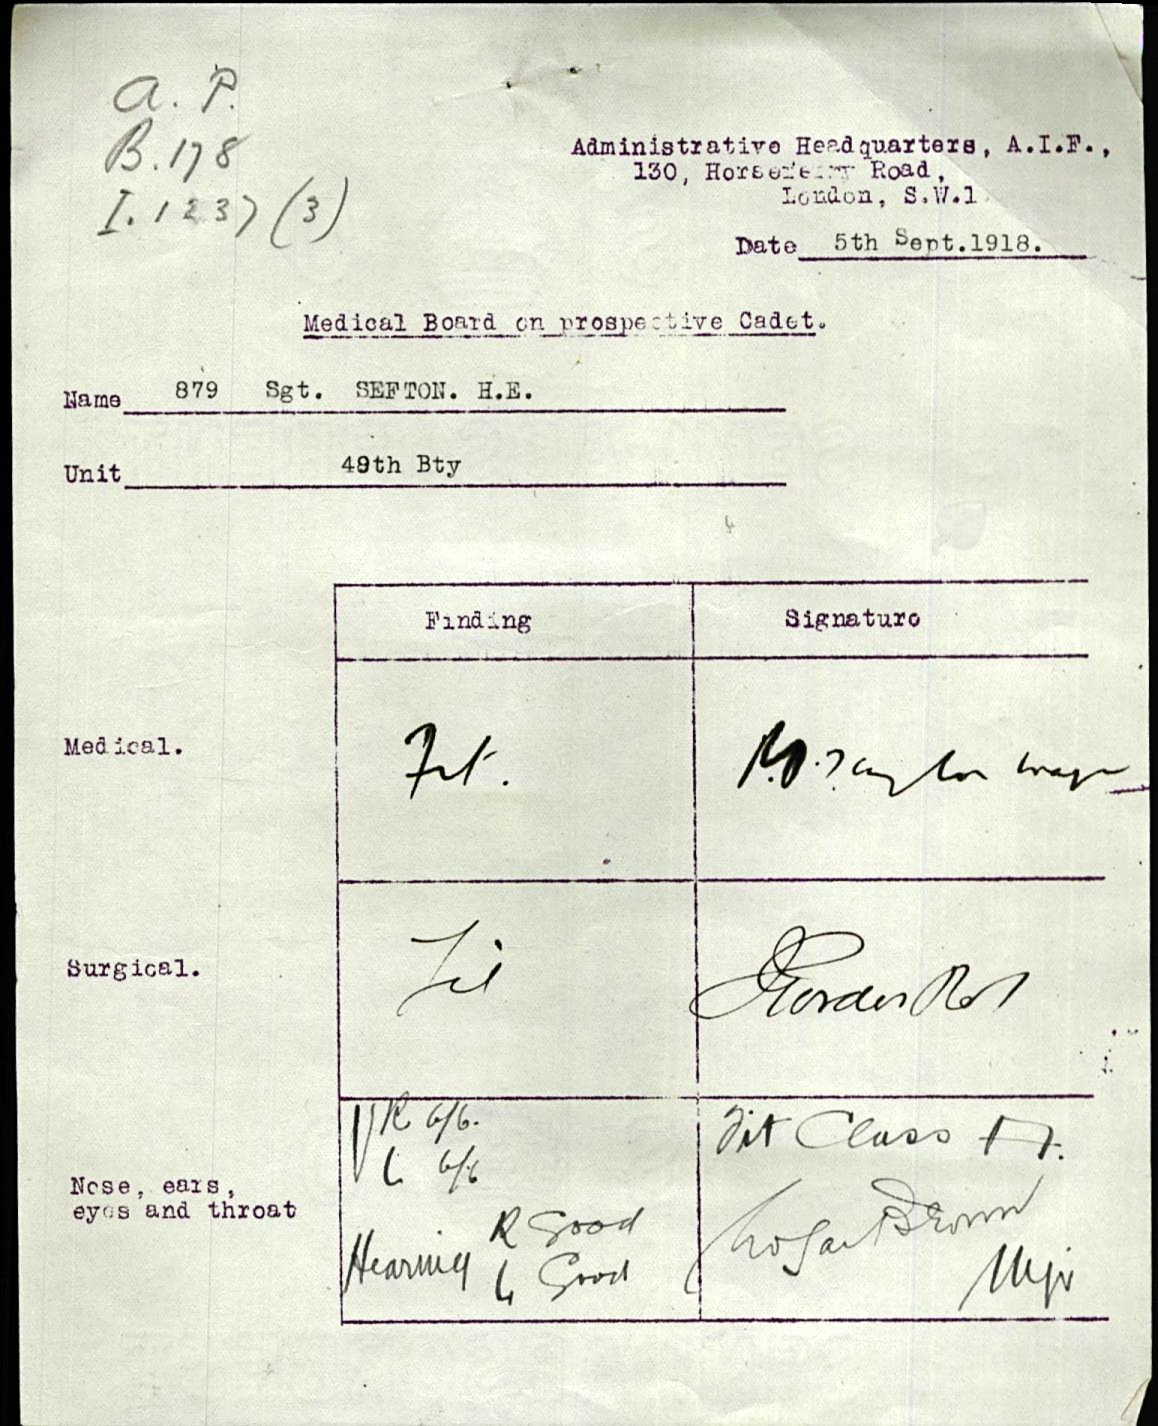 A. P.
B. 178
I. 1237 (3)
Administrative Headquarters, A.I.F.,
130, Horseferry Road,
London, S.W.1
Date 5th Sept.1918.
Medical Board on prospective Cadet.
Name 879 Sgt. SEFTON. H.E.
Unit 49th Bty
Finding Signature
Medical. Fit. Taylor
Surgical. Fit Gordon
V R 6/6. Fit Class A.
L 6/6
Nose, ears,
eyes and throat
R Good Brown
Hearing L Good Major